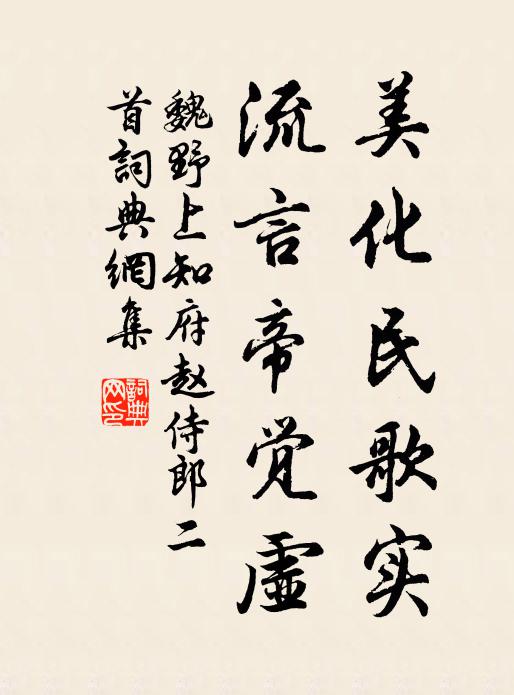 美化民歌实
流言帝觉虚
魏野上知府赵侍郎二
首詞典網集
詞典網印